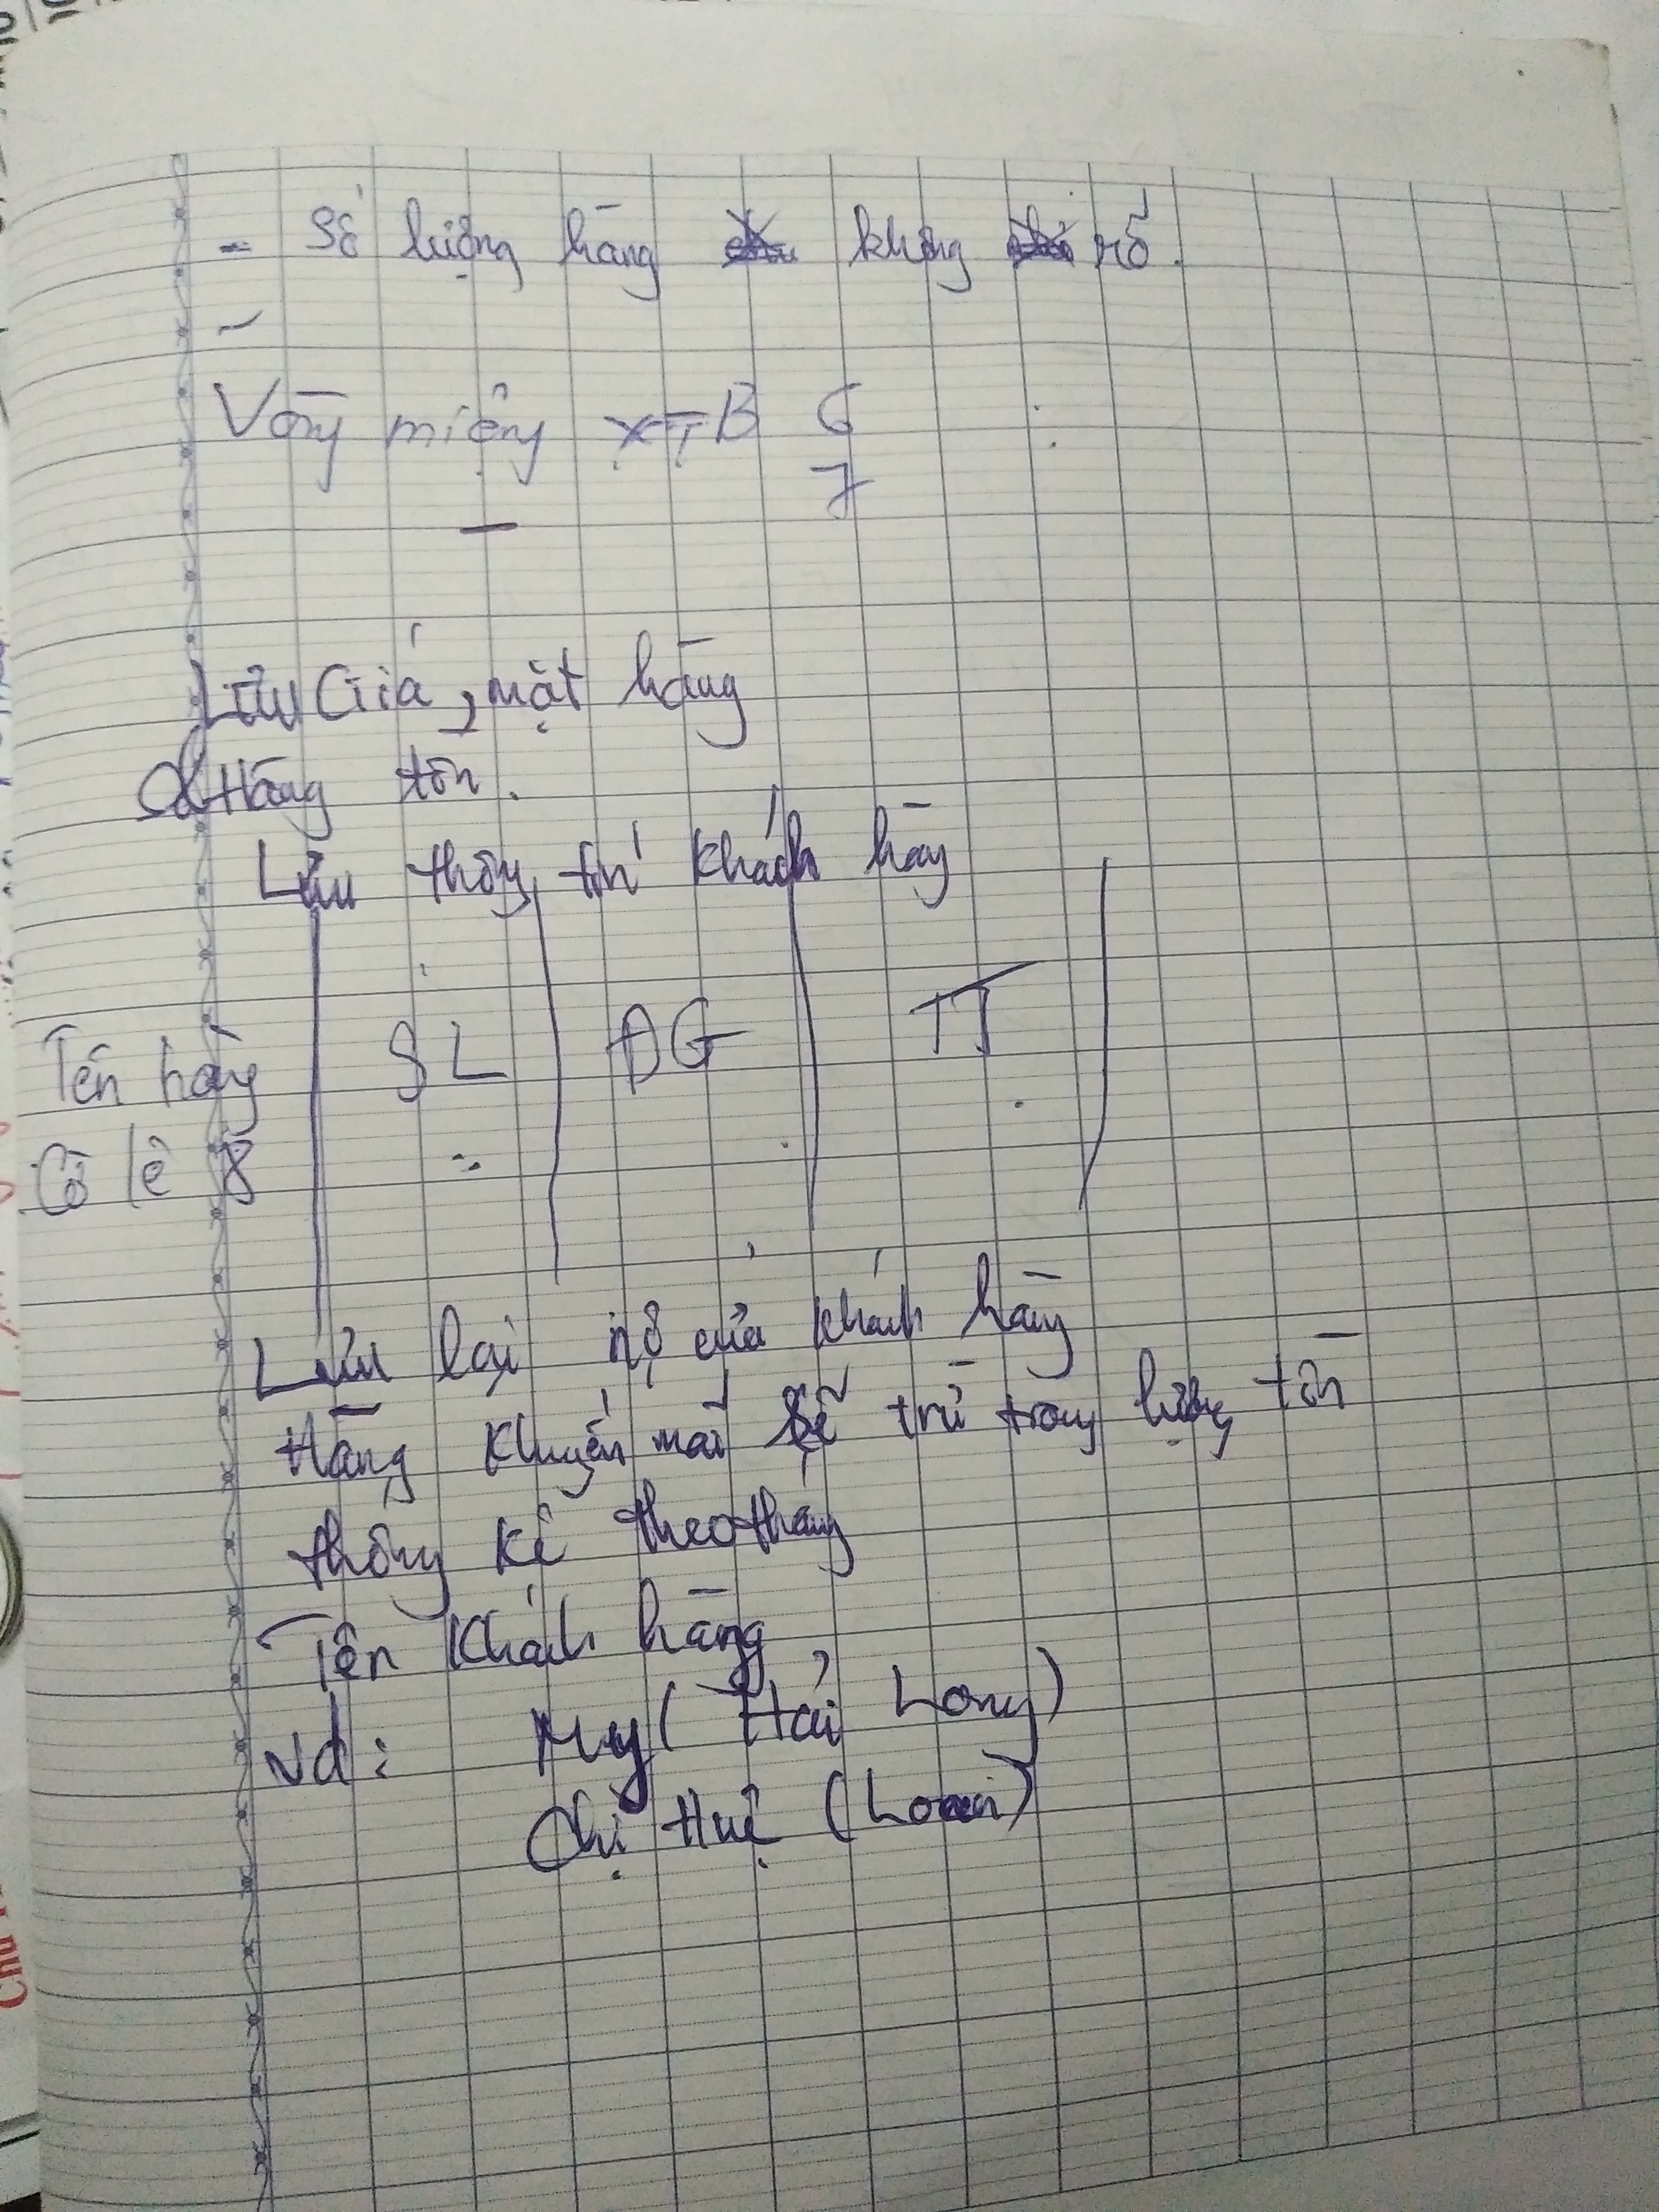 - Số lượng hàng không rõ.
-
Vòng miệng XTB 6
7
Lưu Giá, mặt hàng
Hàng tồn.
Lưu thông tin khách hàng
Tên hàng SL ĐG TT
Cờ lê 8 =
Lưu lại nợ của khách hàng
Hàng khuyến mãi sẽ trừ trong lượng tồn
thống kê theo tháng
Tên khách hàng
vd: My (Hải Long)
Chị Huệ